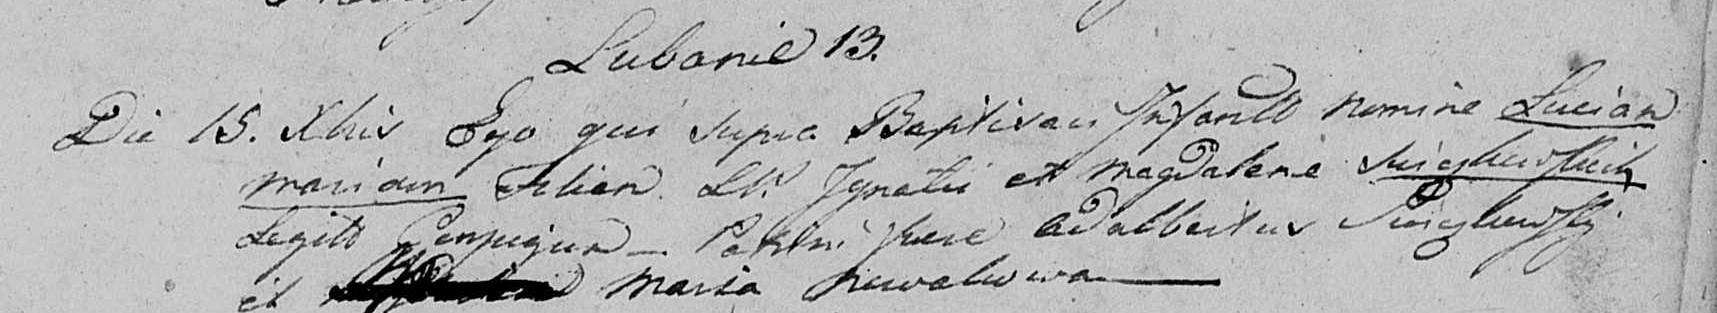 Lubanie 13.
Die 15. Xbris Ego qui supra Baptisavi Infante nomine Lucian
Mariam Filiam LL. Ignatii et Magdalene
Legitt Conjugum — Patrini fuere Adalbertus
et Maria Nowakowa